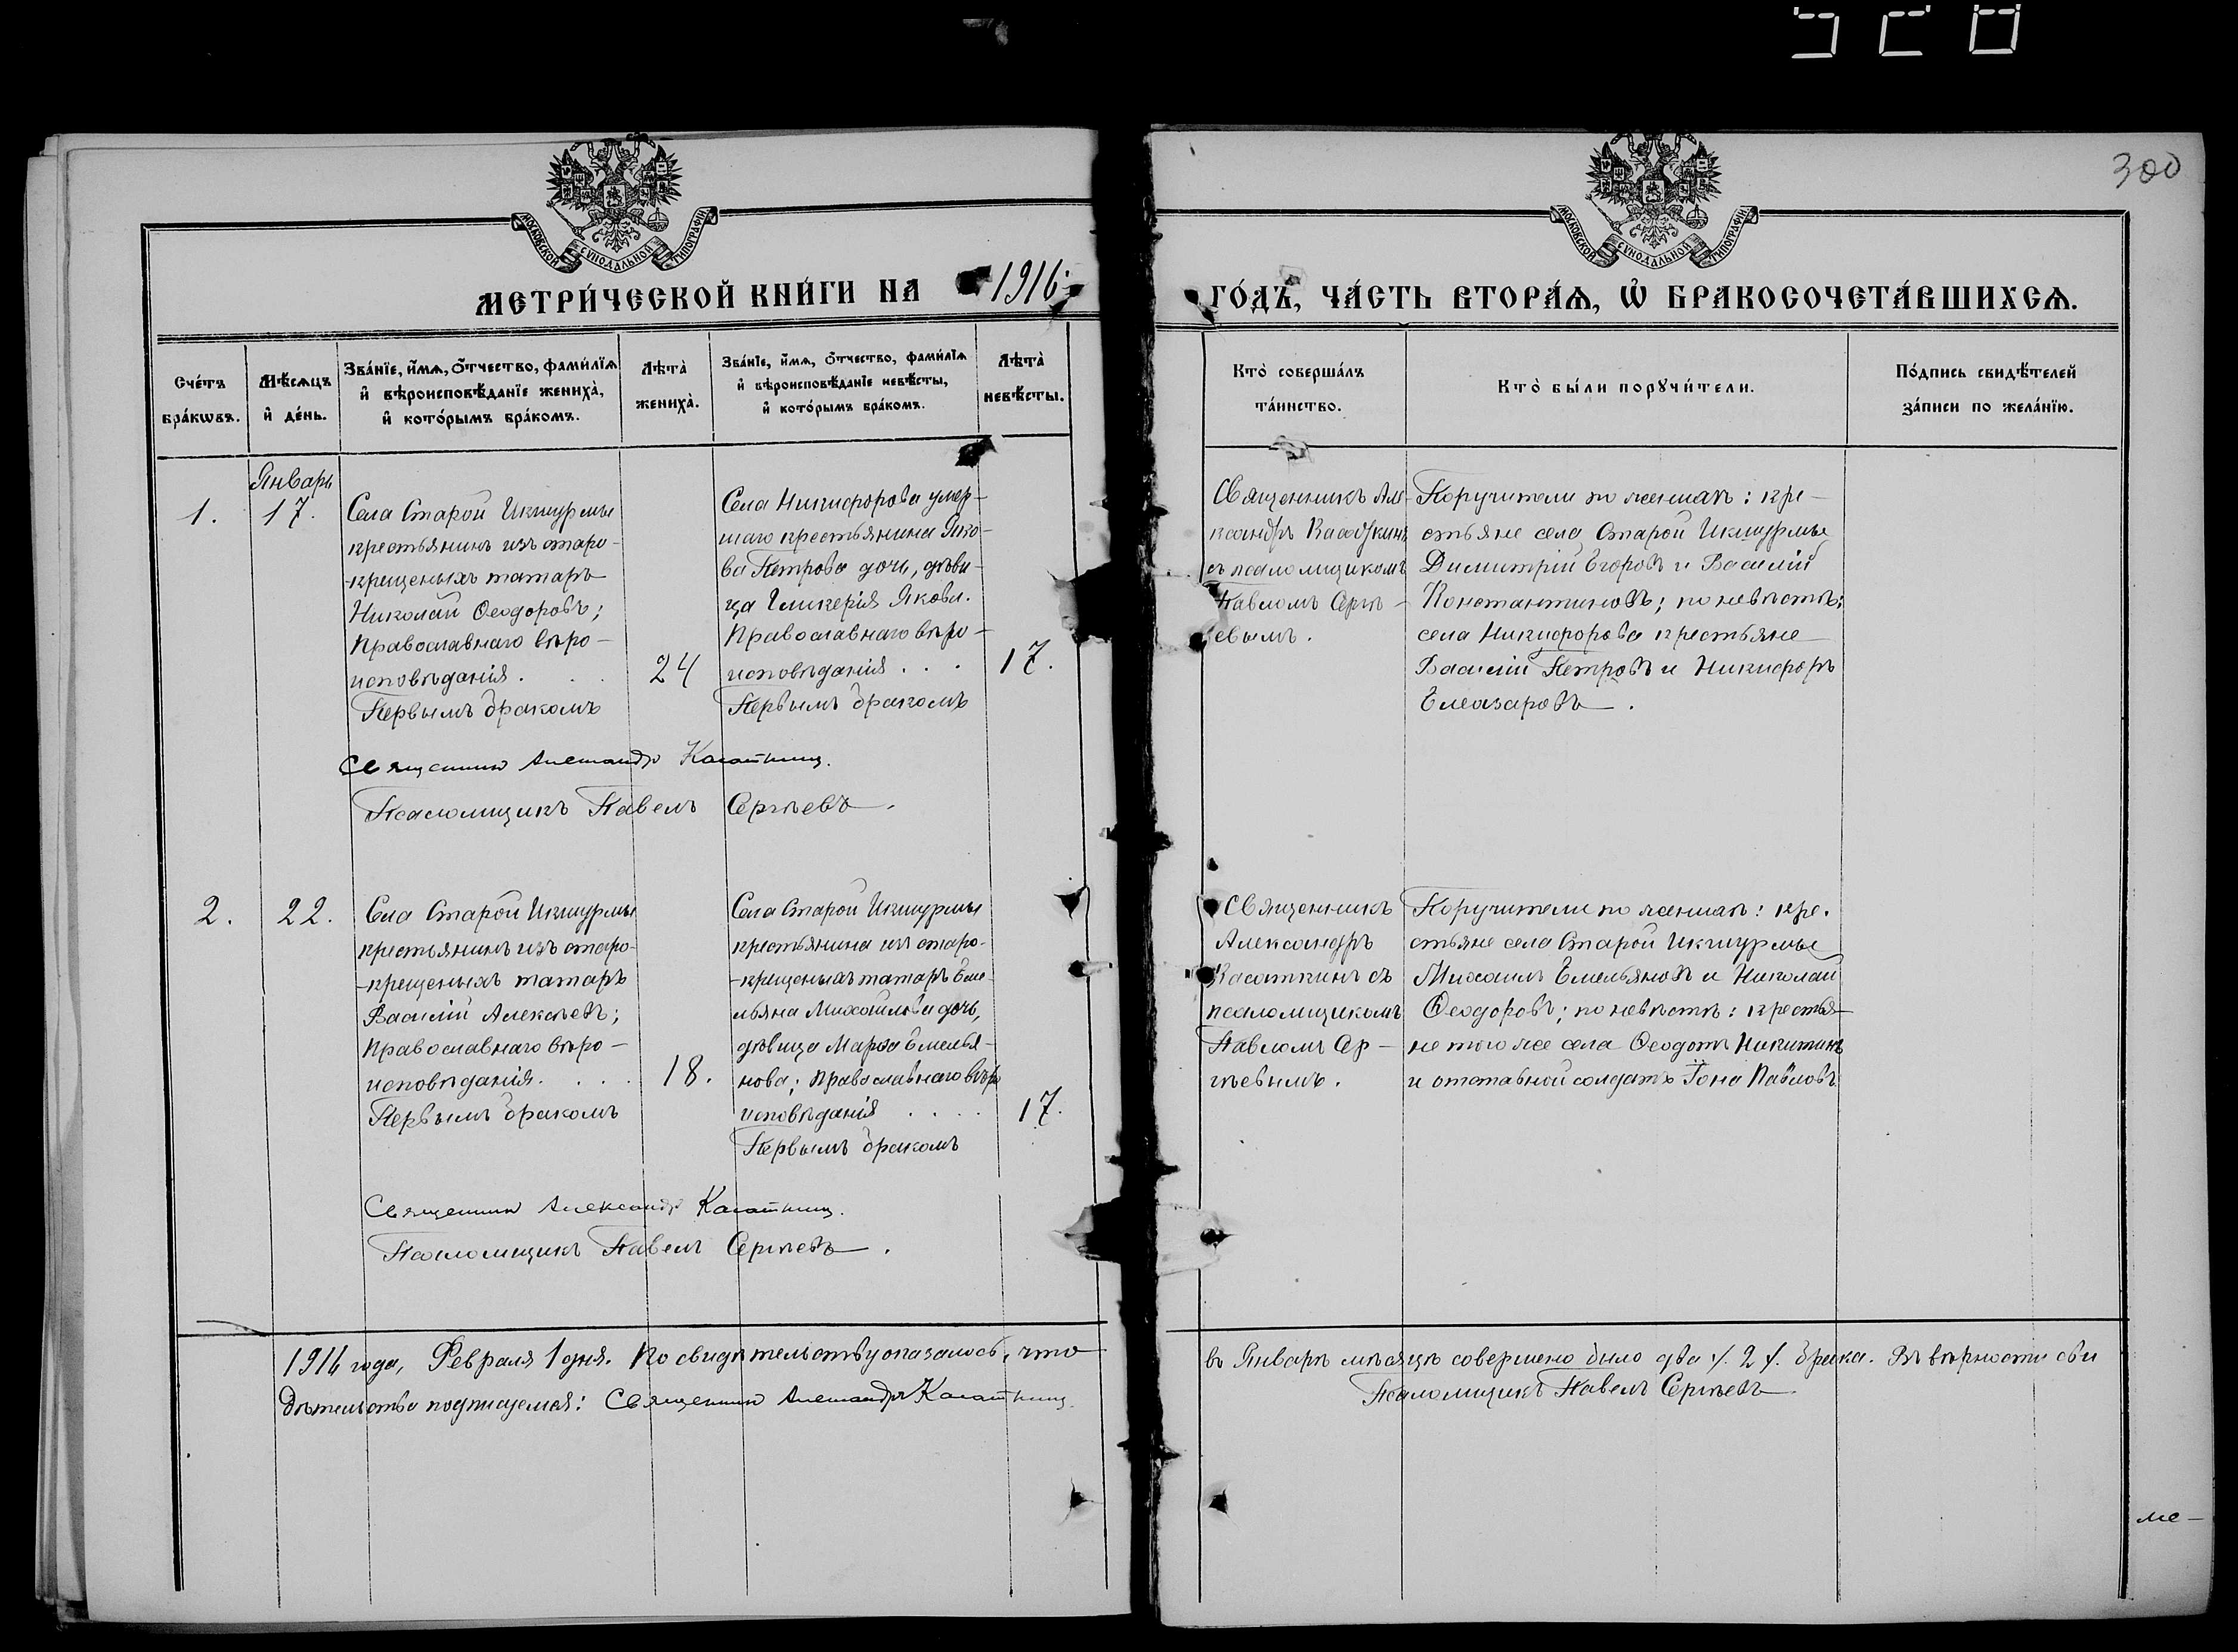 300
МОСКОВСКОЙ СѴНОДАЛЬНОЙ ТИПОГРАФІИ
МОСКОВСКОЙ СѴНОДАЛЬНОЙ ТИПОГРАФІИ
МЕТРИ́ЧЕСКОЙ КНИ́ГИ НА 1916
ГО́ДЪ, ЧА́СТЬ ВТОРА́Ѧ, Ѽ БРАКОСОЧЕТА́ВШИХСѦ.
Сче́тъ
бра́кѡвъ.
Мѣ́сѧцъ
и҆ де́нь.
Зва́нїе, и҆́мѧ, ѻ҆́тчество, фами́лїѧ
и҆ вѣроисповѣ́данїе жениха̀,
и҆ кото́рымъ бра́комъ.
Лѣта̀
жениха̀.
Зва́нїе, и҆́мѧ, ѻ҆́тчество, фами́лїѧ
и҆ вѣроисповѣ́данїе невѣ́сты,
и҆ кото́рымъ бра́комъ.
Лѣта̀
невѣ́сты.
Кто̀ соверша́лъ
та́инство.
Кто̀ бы́ли порꙋчи́тели.
По́дпись свидѣ́телей
за́писи по жела́нїю.
1.
Январь
17.
Села Старой Икшурмы
крестьянинъ изъ старо-
-крещеныхъ татаръ
Николай Ѳеодоровъ;
Православнаго вѣро-
исповѣданія . . .
Первымъ бракомъ
24
Села Никифорова умер-
шаго крестьянина Яко-
ва Петрова дочь, дѣви-
ца Гликерія Яковл.
Православнаго вѣро-
исповѣданія . . .
Первымъ бракомъ
17.
Священникъ Але-
ксандръ Касаткинъ
съ псаломщикомъ
Павломъ Сергѣ-
евымъ.
Поручители по женихѣ: кре-
стьяне села Старой Икшурмы
Димитрій Егоровъ и Василій
Константиновъ; по невѣстѣ:
села Никифорова крестьяне
Василій Петровъ и Никифоръ
Елеазаровъ.
Священникъ Александръ Касаткинъ.
Псаломщикъ Павелъ Сергѣевъ.
2.
22.
Села Старой Икшурмы
крестьянинъ изъ старо-
-крещеныхъ татаръ
Василій Алексѣевъ;
Православнаго вѣро-
исповѣданія. . . .
Первымъ бракомъ
18.
Села Старой Икшурмы
крестьянина изъ старо-
-крещеныхъ татаръ Еме-
льяна Михайлова дочь,
дѣвица Марѳа Емелья-
нова; Православнаго вѣро
исповѣданія . . . .
Первымъ бракомъ
17.
Священникъ
Александръ
Касаткинъ съ
псаломщикомъ
Павломъ Сер-
гѣевымъ.
Поручители по женихѣ: кре-
стьяне села Старой Икшурмы
Михаилъ Емельяновъ и Николай
Ѳеодоровъ; по невѣстѣ: крестья-
не того же села Ѳеодотъ Никитинъ
и отставной солдатъ Іона Павловъ
Священникъ Александръ Касаткинъ.
Псаломщикъ Павелъ Сергѣевъ.
1916 года, Февраля 1 дня. По свидѣтельству оказалось, что въ Январѣ мѣсяцѣ совершено было два ./. 2 ./. брака. Въ вѣрности сви
дѣтельства подписуемся: Священникъ Александръ Касаткинъ. Псаломщикъ Павелъ Сергѣевъ
ме-